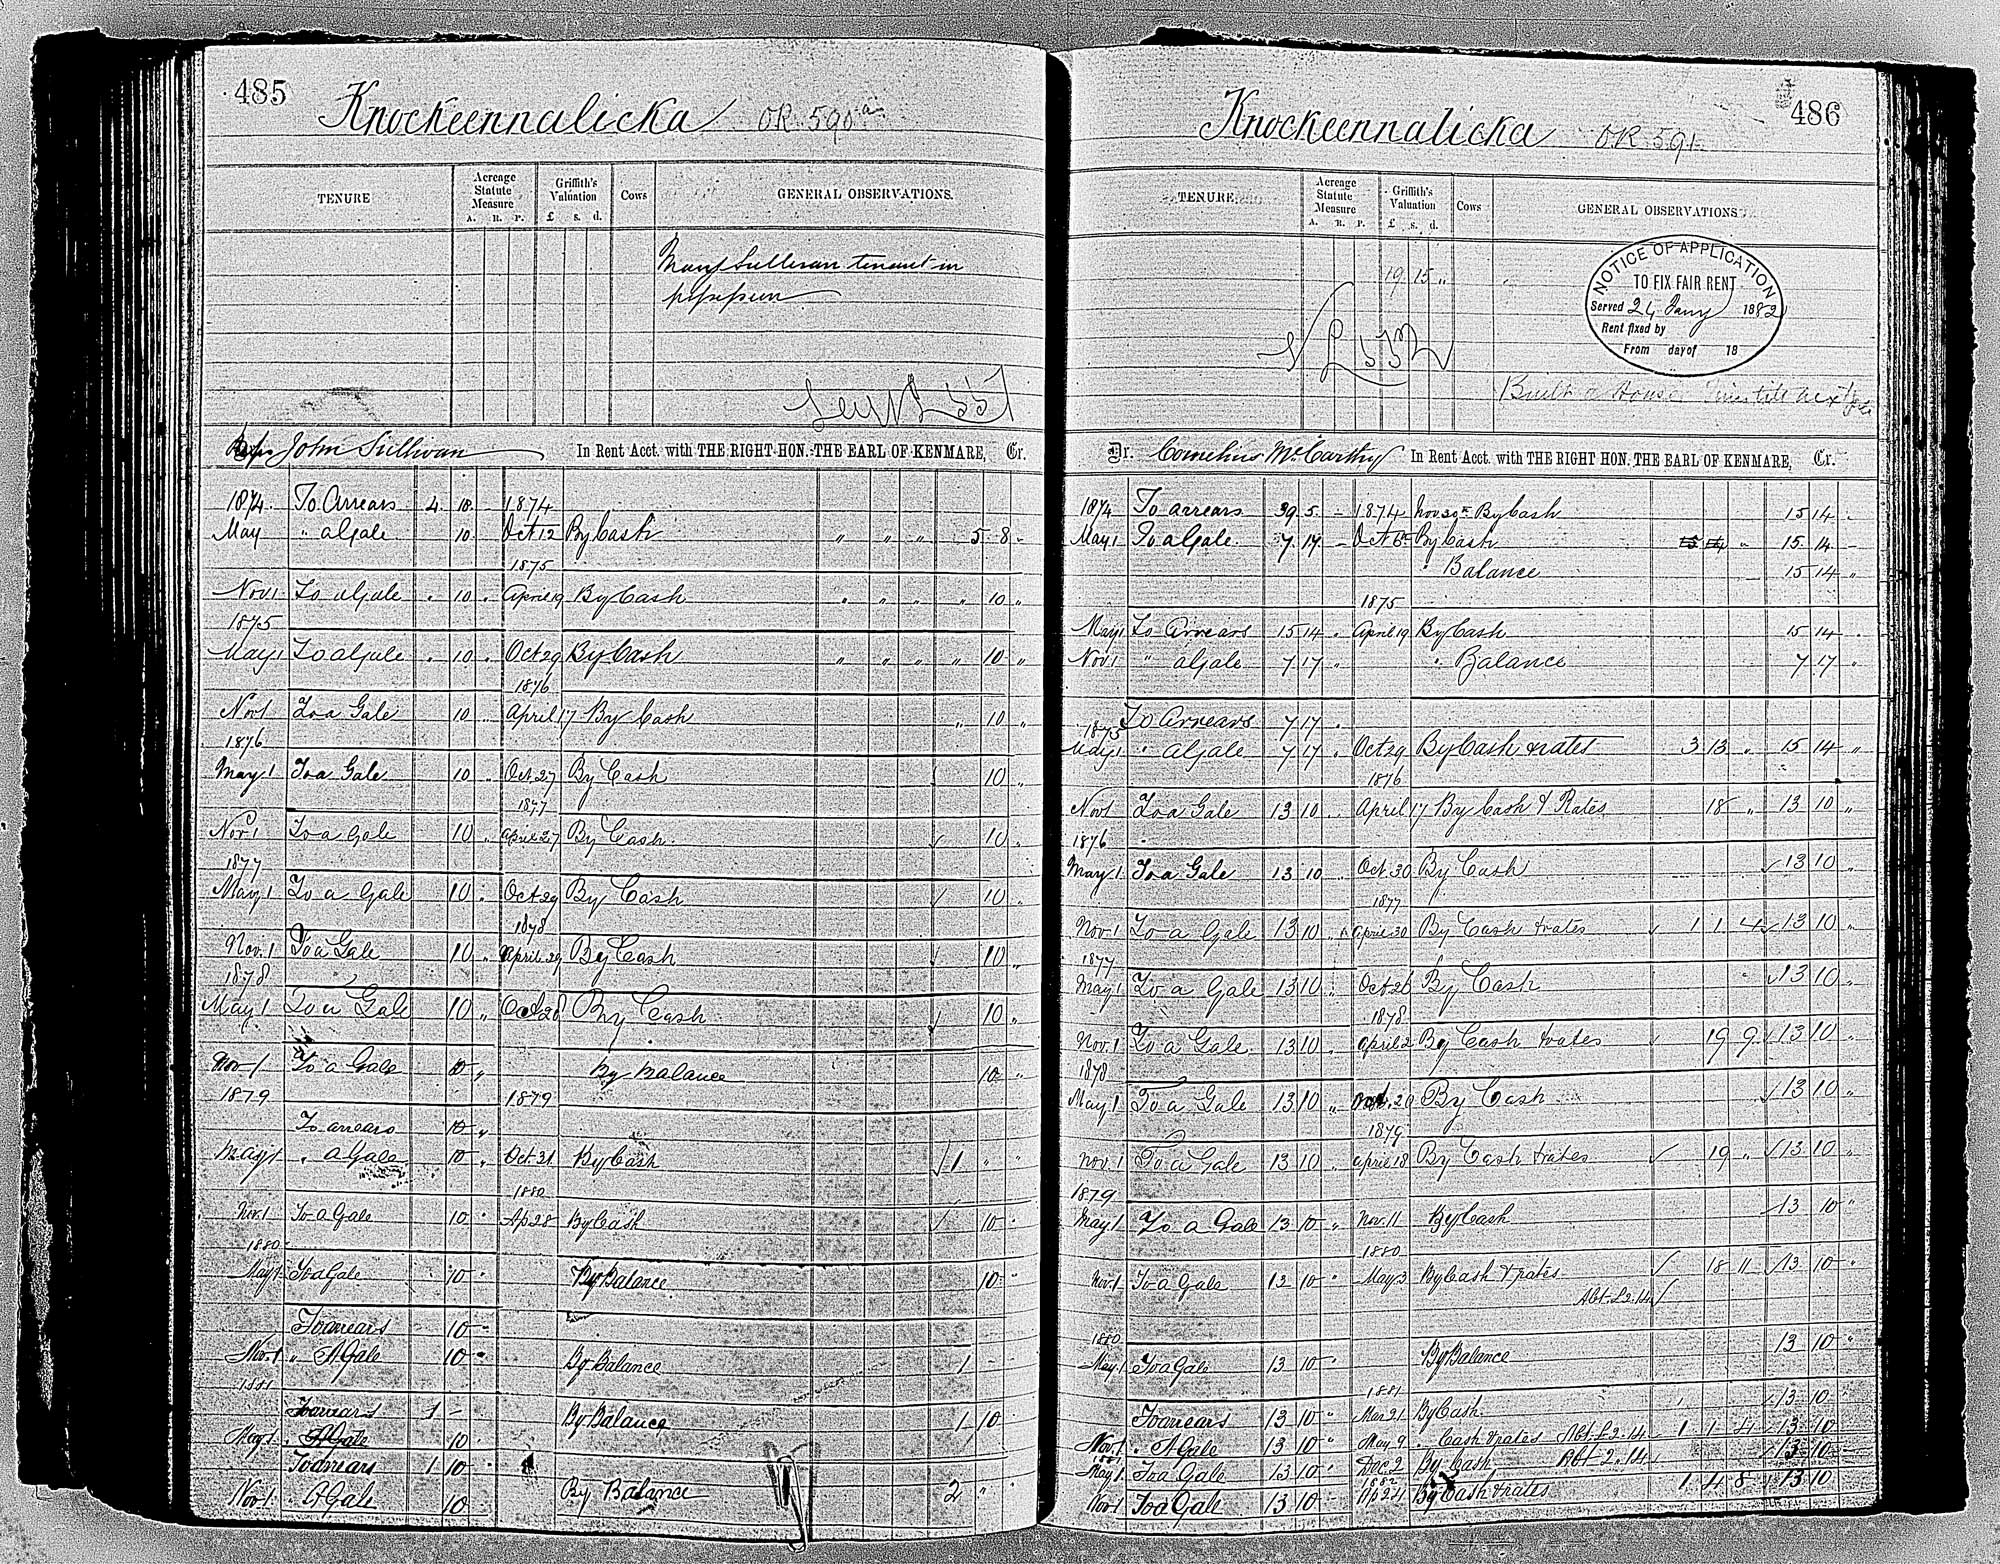 485
Knockeennalicka OR 590a
TENURE
Acreage Statute Measure
A. R. P.
Griffith's Valuation
£ s. d.
Cows
GENERAL OBSERVATIONS.
Mary Sullivan tenant in
possession
Reps John Sullivan In Rent Acct. with THE RIGHT HON. THE EARL OF KENMARE, Cr.
1874 To Arrears 4 18 - 1874
May " a Gale 10 Oct 12 By Cash " " " 5 8 -
1875
Nov 1 To a Gale " 10 " April 19 By Cash " " " " 10 "
1875
May 1 To a Gale " 10 " Oct 29 By Cash " " " " 10 "
1876
Nov 1 To a Gale 10 " April 17 By Cash " 10 "
1876
May 1 To a Gale 10 " Oct 27 By Cash 10 "
1877
Nov 1 To a Gale 10 " April 27 By Cash 10 "
1877
May 1 To a Gale 10 " Oct 29 By Cash 10 "
1878
Nov. 1 To a Gale 10 " April 29 By Cash 10 "
1878
May 1 To a Gale 10 " Oct 28 By Cash 10 "
Nov 1 To a Gale 10 " By Balance 10 "
1879 1879
To arrears 10 "
May 1 " a Gale 10 " Oct. 31 By Cash 1 " "
1880
Nov. 1 To a Gale 10 " Ap 28 By Cash 10 "
1880
May 1 To a Gale 10 " By Balance 10 "
To arrears 10 -
Nov. 1 " A Gale 10 " By Balance 1 - "
1881
To arrears 1 - By Balance 1 10
May 1 " A Gale 10
To arrears 1 10 "
Nov 1 " A Gale 10 By Balance 2 " "
486
Knockeennalicka OR 591
TENURE
Acreage Statute Measure
A. R. P.
Griffith's Valuation
£ s. d.
Cows
GENERAL OBSERVATIONS
19 15 "
NOTICE OF APPLICATION
TO FIX FAIR RENT
Served 24 Jany 1882
Rent fixed by
From day of 18
Built a House Time till next
Dr. Cornelius McCarthy In Rent Acct. with THE RIGHT HON. THE EARL OF KENMARE, Cr.
1874 To arrears 39 5 - 1874 Nov 30th By Cash 15 14 "
May 1 To a Gale 7 17 - Oct 6th By Cash 15 14 -
" Balance 15 14 "
1875
May 1 To Arrears 15 14 " April 19 By Cash 15 14 "
Nov 1 " a Gale 7 17 " " Balance 7 17 "
To Arrears 7 17 "
1875
May 1 " a Gale 7 17 " Oct 29 By Cash & rates 3 13 " 15 14 "
1876
Nov 1 To a Gale 13 10 " April 17 By Cash & Rates 18 " 13 10 "
1876
May 1 To a Gale 13 10 " Oct 30 By Cash 13 10 "
1877
Nov. 1 To a Gale 13 10 " April 30 By Cash & rates 1 1 4 13 10 "
1877
May 1 To a Gale 13 10 " Oct 26 By Cash 13 10 "
1878
Nov. 1 To a Gale 13 10 " April 2 By Cash & rates 19 9 13 10 "
1878
May 1 To a Gale 13 10 " Oct. 20 By Cash 13 10 "
1879
Nov. 1 To a Gale 13 10 " April 18 By Cash & rates 19 " 13 10 "
1879
May 1 To a Gale 13 10 " Nov. 11 By Cash 13 10 "
1880
Nov. 1 To a Gale 13 10 " May 3 By Cash & rates 18 11 13 10 "
Abt. £2.14
1880
May 1 To a Gale 13 10 " By Balance 13 10 "
1881
To arrears 13 10 " Mar 21 By Cash 13 10 "
Nov. 1 " A Gale 13 10 " May 9 " Cash & rates Abt. £2.14 1 1 4 13 10
1881
May 1 To a Gale 13 10 " Dec 2 By Cash Abt 2.14 13 10 -
1882
Nov 1 To a Gale 13 10 Ap 24 By Cash & rates 1 4 8 13 10